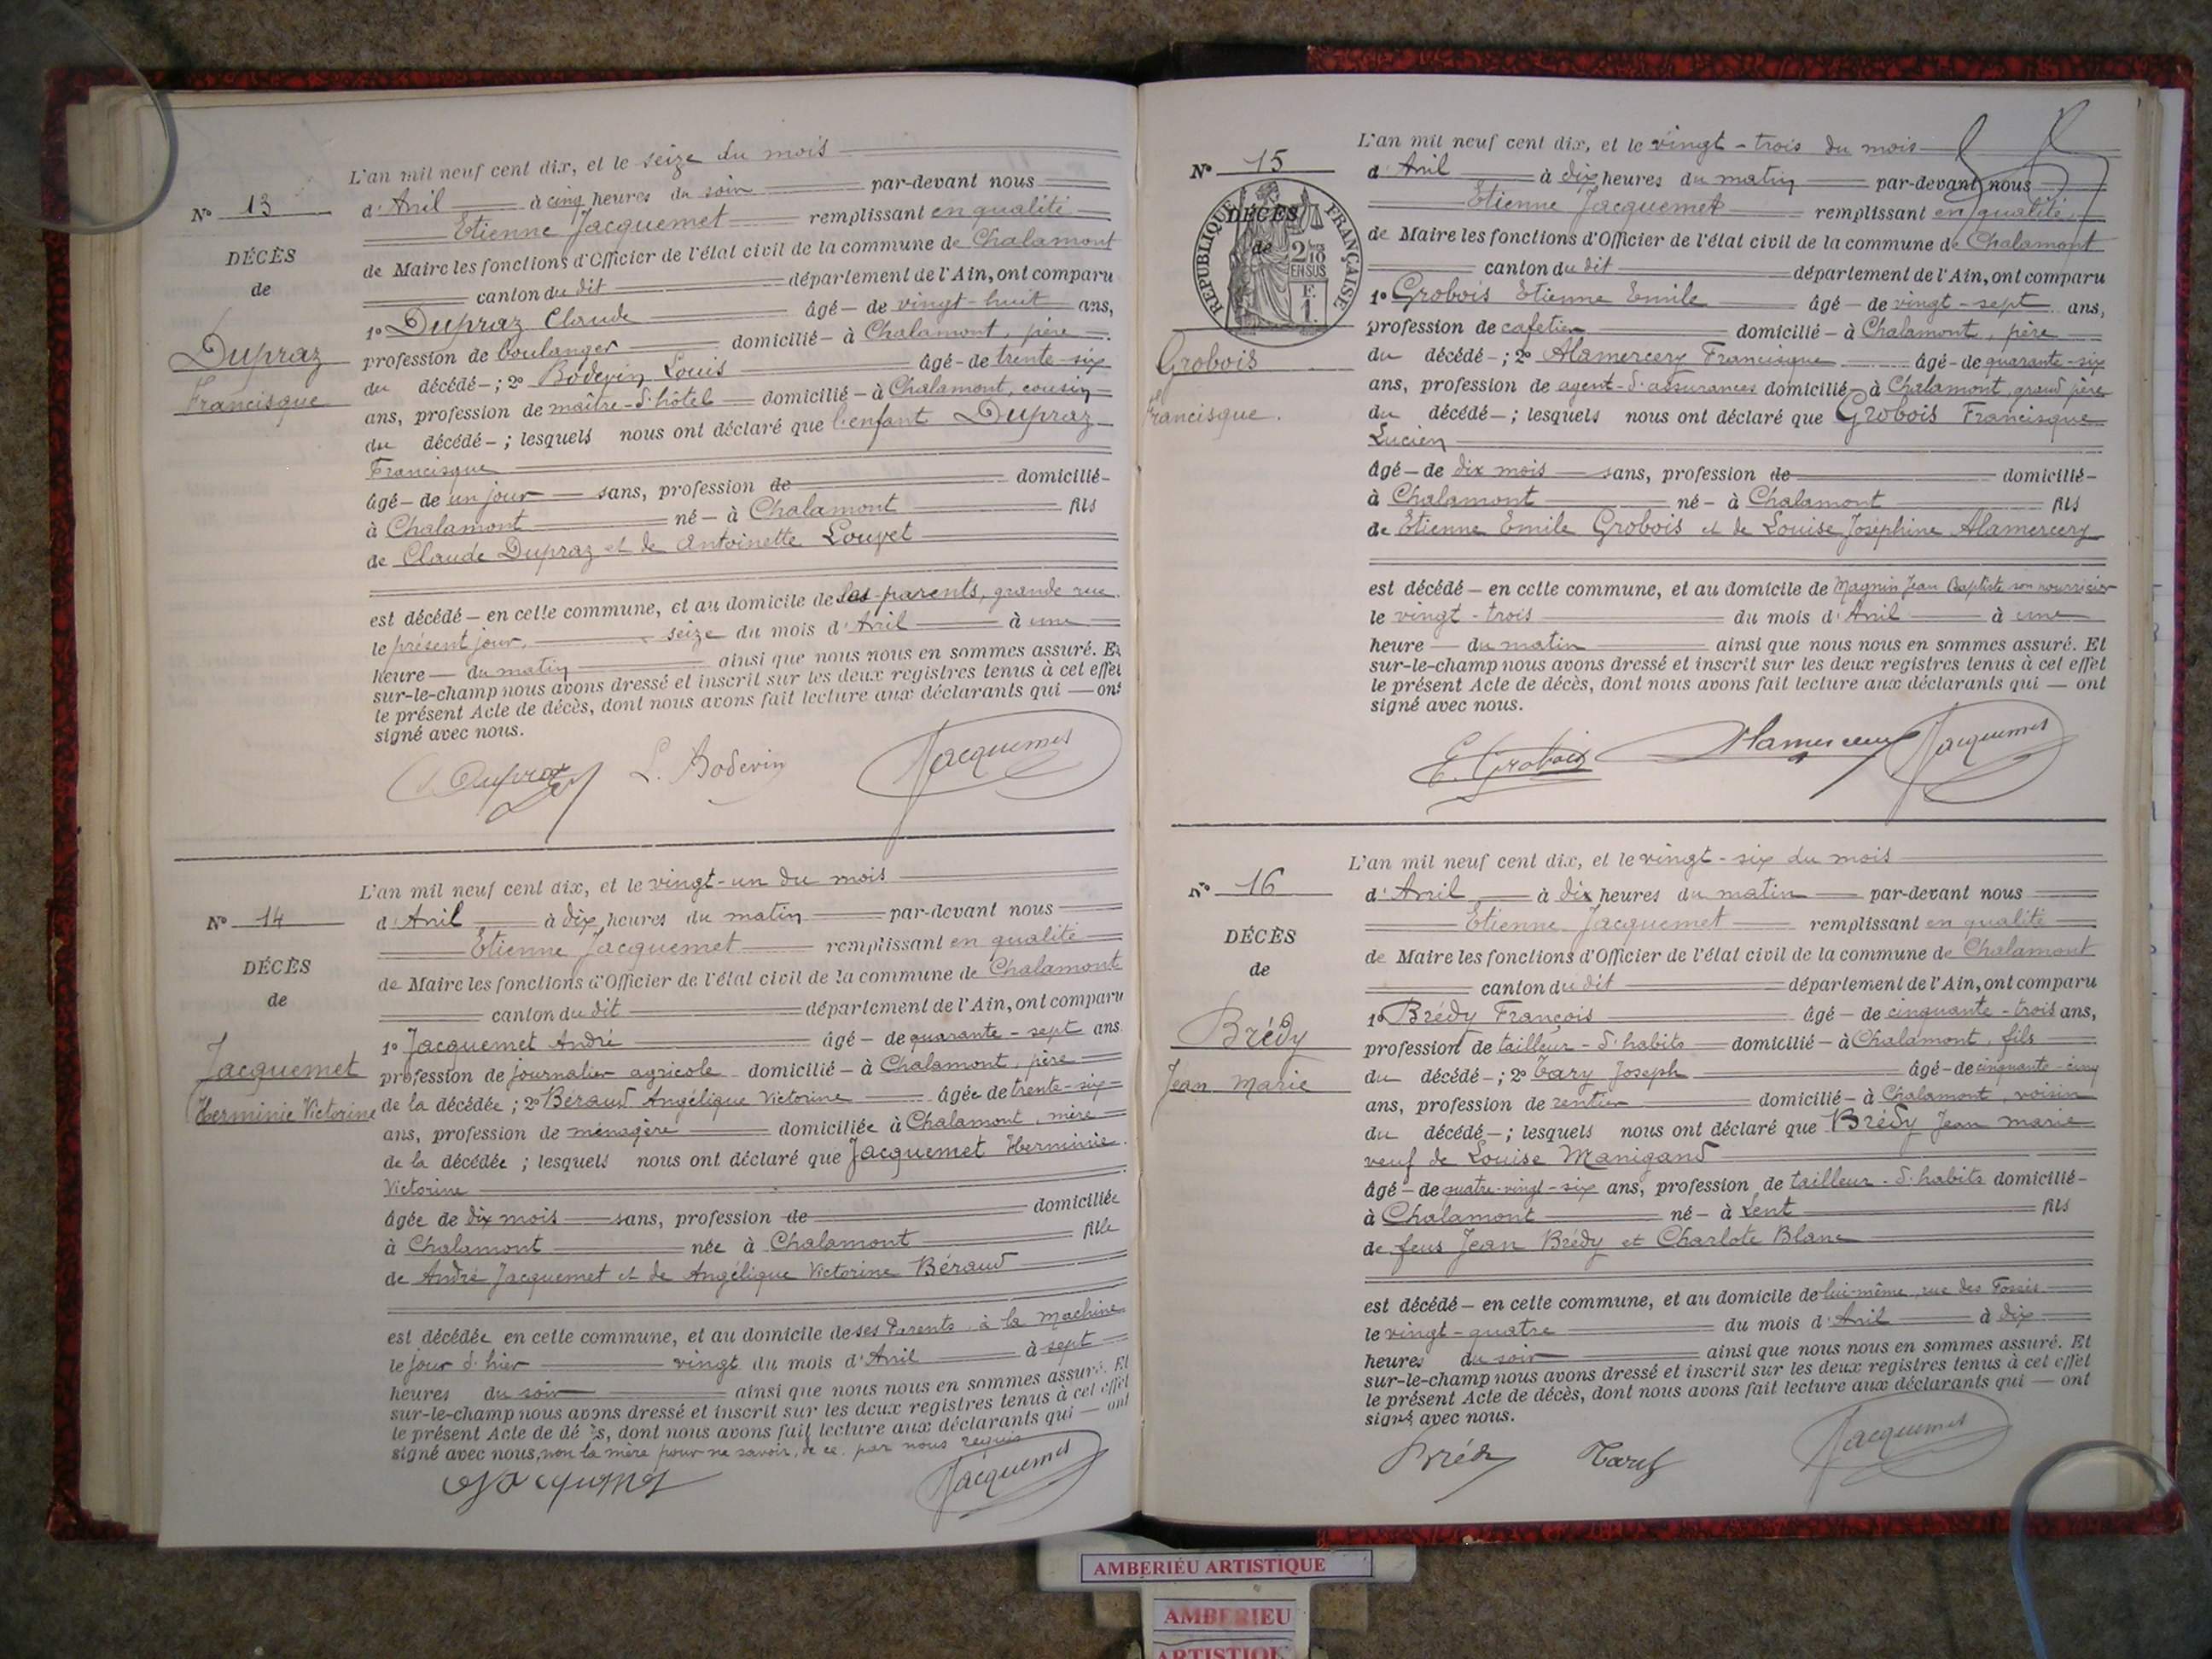 L'an mil neuf cent dix, et le seize du mois
N° 13
d'Avril à cinq heures du soir par-devant nous
Etienne Jacquemet remplissant en qualité
DÉCÈS
de Maire les fonctions d'Officier de l'état civil de la commune de Chalamont
de
canton du dit département de l'Ain, ont comparu
1° Dupraz Claude âgé de vingt-huit ans,
Dupraz
profession de boulanger domicilié à Chalamont, père
du décédé ; 2° Bodevin Louis âgé de trente-six
Francisque
ans, profession de maître-d'hôtel domicilié à Chalamont, cousin
du décédé ; lesquels nous ont déclaré que l'enfant Dupraz
Francisque
âgé de un jour sans, profession de domicilié
à Chalamont né à Chalamont fils
de Claude Dupraz et de Antoinette Louvet
est décédé en cette commune, et au domicile de ses parents, grande rue
le présent jour, seize du mois d'Avril à une
heure du matin ainsi que nous nous en sommes assuré. Et
sur-le-champ nous avons dressé et inscrit sur les deux registres tenus à cet effet
le présent Acte de décès, dont nous avons fait lecture aux déclarants qui ont
signé avec nous.
C. Dupraz L. Bodevin Jacquemet
L'an mil neuf cent dix, et le vingt-un du mois
N° 14
d'Avril à dix heures du matin par-devant nous
Etienne Jacquemet remplissant en qualité
DÉCÈS
de Maire les fonctions d'Officier de l'état civil de la commune de Chalamont
de
canton du dit département de l'Ain, ont comparu
1° Jacquemet André âgé de quarante-sept ans
Jacquemet
profession de journalier agricole domicilié à Chalamont, père
Herminie Victorine
de la décédée ; 2° Béraud Angélique Victorine âgée de trente-six
ans, profession de ménagère domiciliée à Chalamont, mère
de la décédée ; lesquels nous ont déclaré que Jacquemet Herminie
Victorine
âgée de dix mois sans, profession de domiciliée
à Chalamont née à Chalamont fille
de André Jacquemet et de Angélique Victorine Béraud
est décédée en cette commune, et au domicile de ses Parents, à la Machine
le jour d'hier vingt du mois d'Avril à sept
heures du soir ainsi que nous nous en sommes assuré. Et
sur-le-champ nous avons dressé et inscrit sur les deux registres tenus à cet effet
le présent Acte de décès, dont nous avons fait lecture aux déclarants qui ont
signé avec nous, non la mère pour ne savoir, de ce par nous requis
Jacquemet Jacquemet
L'an mil neuf cent dix, et le vingt-trois du mois
N° 15
d'Avril à dix heures du matin par-devant nous
Etienne Jacquemet remplissant en qualité
DÉCÈS
RÉPUBLIQUE FRANÇAISE
de
2/10 EN SUS
F. 1.
de Maire les fonctions d'Officier de l'état civil de la commune de Chalamont
canton du dit département de l'Ain, ont comparu
1° Grobois Etienne Emile âgé de vingt-sept ans,
profession de cafetier domicilié à Chalamont, père
Grobois
du décédé ; 2° Alamercery Francisque âgé de quarante-six
ans, profession de agent-d'assurances domicilié à Chalamont, grand père
Francisque.
du décédé ; lesquels nous ont déclaré que Grobois Francisque
Lucien
âgé de dix mois sans, profession de domicilié
à Chalamont né à Chalamont fils
de Etienne Emile Grobois et de Louise Joséphine Alamercery
est décédé en cette commune, et au domicile de Magnin Jean Baptiste son nourricier
le vingt-trois du mois d'Avril à une
heure du matin ainsi que nous nous en sommes assuré. Et
sur-le-champ nous avons dressé et inscrit sur les deux registres tenus à cet effet
le présent Acte de décès, dont nous avons fait lecture aux déclarants qui ont
signé avec nous.
E. Grobois Alamercery Jacquemet
L'an mil neuf cent dix, et le vingt-six du mois
N° 16
d'Avril à dix heures du matin par-devant nous
Etienne Jacquemet remplissant en qualité
DÉCÈS
de Maire les fonctions d'Officier de l'état civil de la commune de Chalamont
de
canton du dit département de l'Ain, ont comparu
1° Brédy François âgé de cinquante-trois ans,
Brédy
profession de tailleur-d'habits domicilié à Chalamont, fils
Jean Marie
du décédé ; 2° Tary Joseph âgé de cinquante-cinq
ans, profession de rentier domicilié à Chalamont, voisin
du décédé ; lesquels nous ont déclaré que Brédy Jean marie
veuf de Louise Manigand
âgé de quatre-vingt-six ans, profession de tailleur-d'habits domicilié
à Chalamont né à Lent fils
de feus Jean Brédy et Charlote Blanc
est décédé en cette commune, et au domicile de lui-même, rue des Fossés
le vingt-quatre du mois d'Avril à dix
heures du soir ainsi que nous nous en sommes assuré. Et
sur-le-champ nous avons dressé et inscrit sur les deux registres tenus à cet effet
le présent Acte de décès, dont nous avons fait lecture aux déclarants qui ont
signé avec nous.
Brédy Tary Jacquemet
AMBERIEU ARTISTIQUE
AMBERIEU
ARTISTIQUE